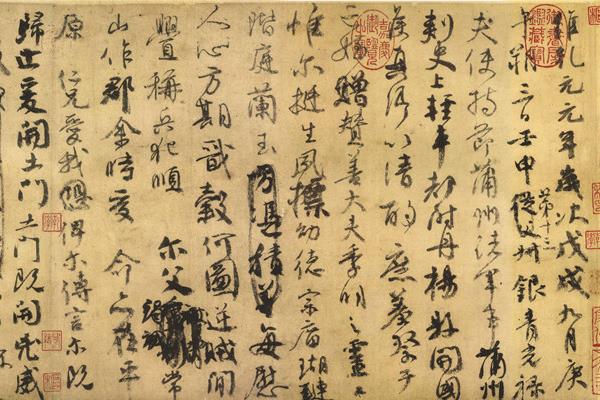 維乾元元年歲次戊戌九月庚
午朔三日壬申第十三銀青光祿
夫使持節蒲州諸軍事蒲州
刺史上輕車都尉丹楊縣開國
侯真卿以清酌庶羞祭于
亡姪贈贊善大夫季明之靈曰
惟爾挺生夙標幼德宗廟瑚璉
階庭蘭玉方憑積善每慰
人心方期戩穀何圖逆賊間
釁稱兵犯順 爾父竭誠常
山作郡余時受 命亦在平
原 仁兄愛我恐俾爾傳言爾既
歸止爰開土門土門既開凶威